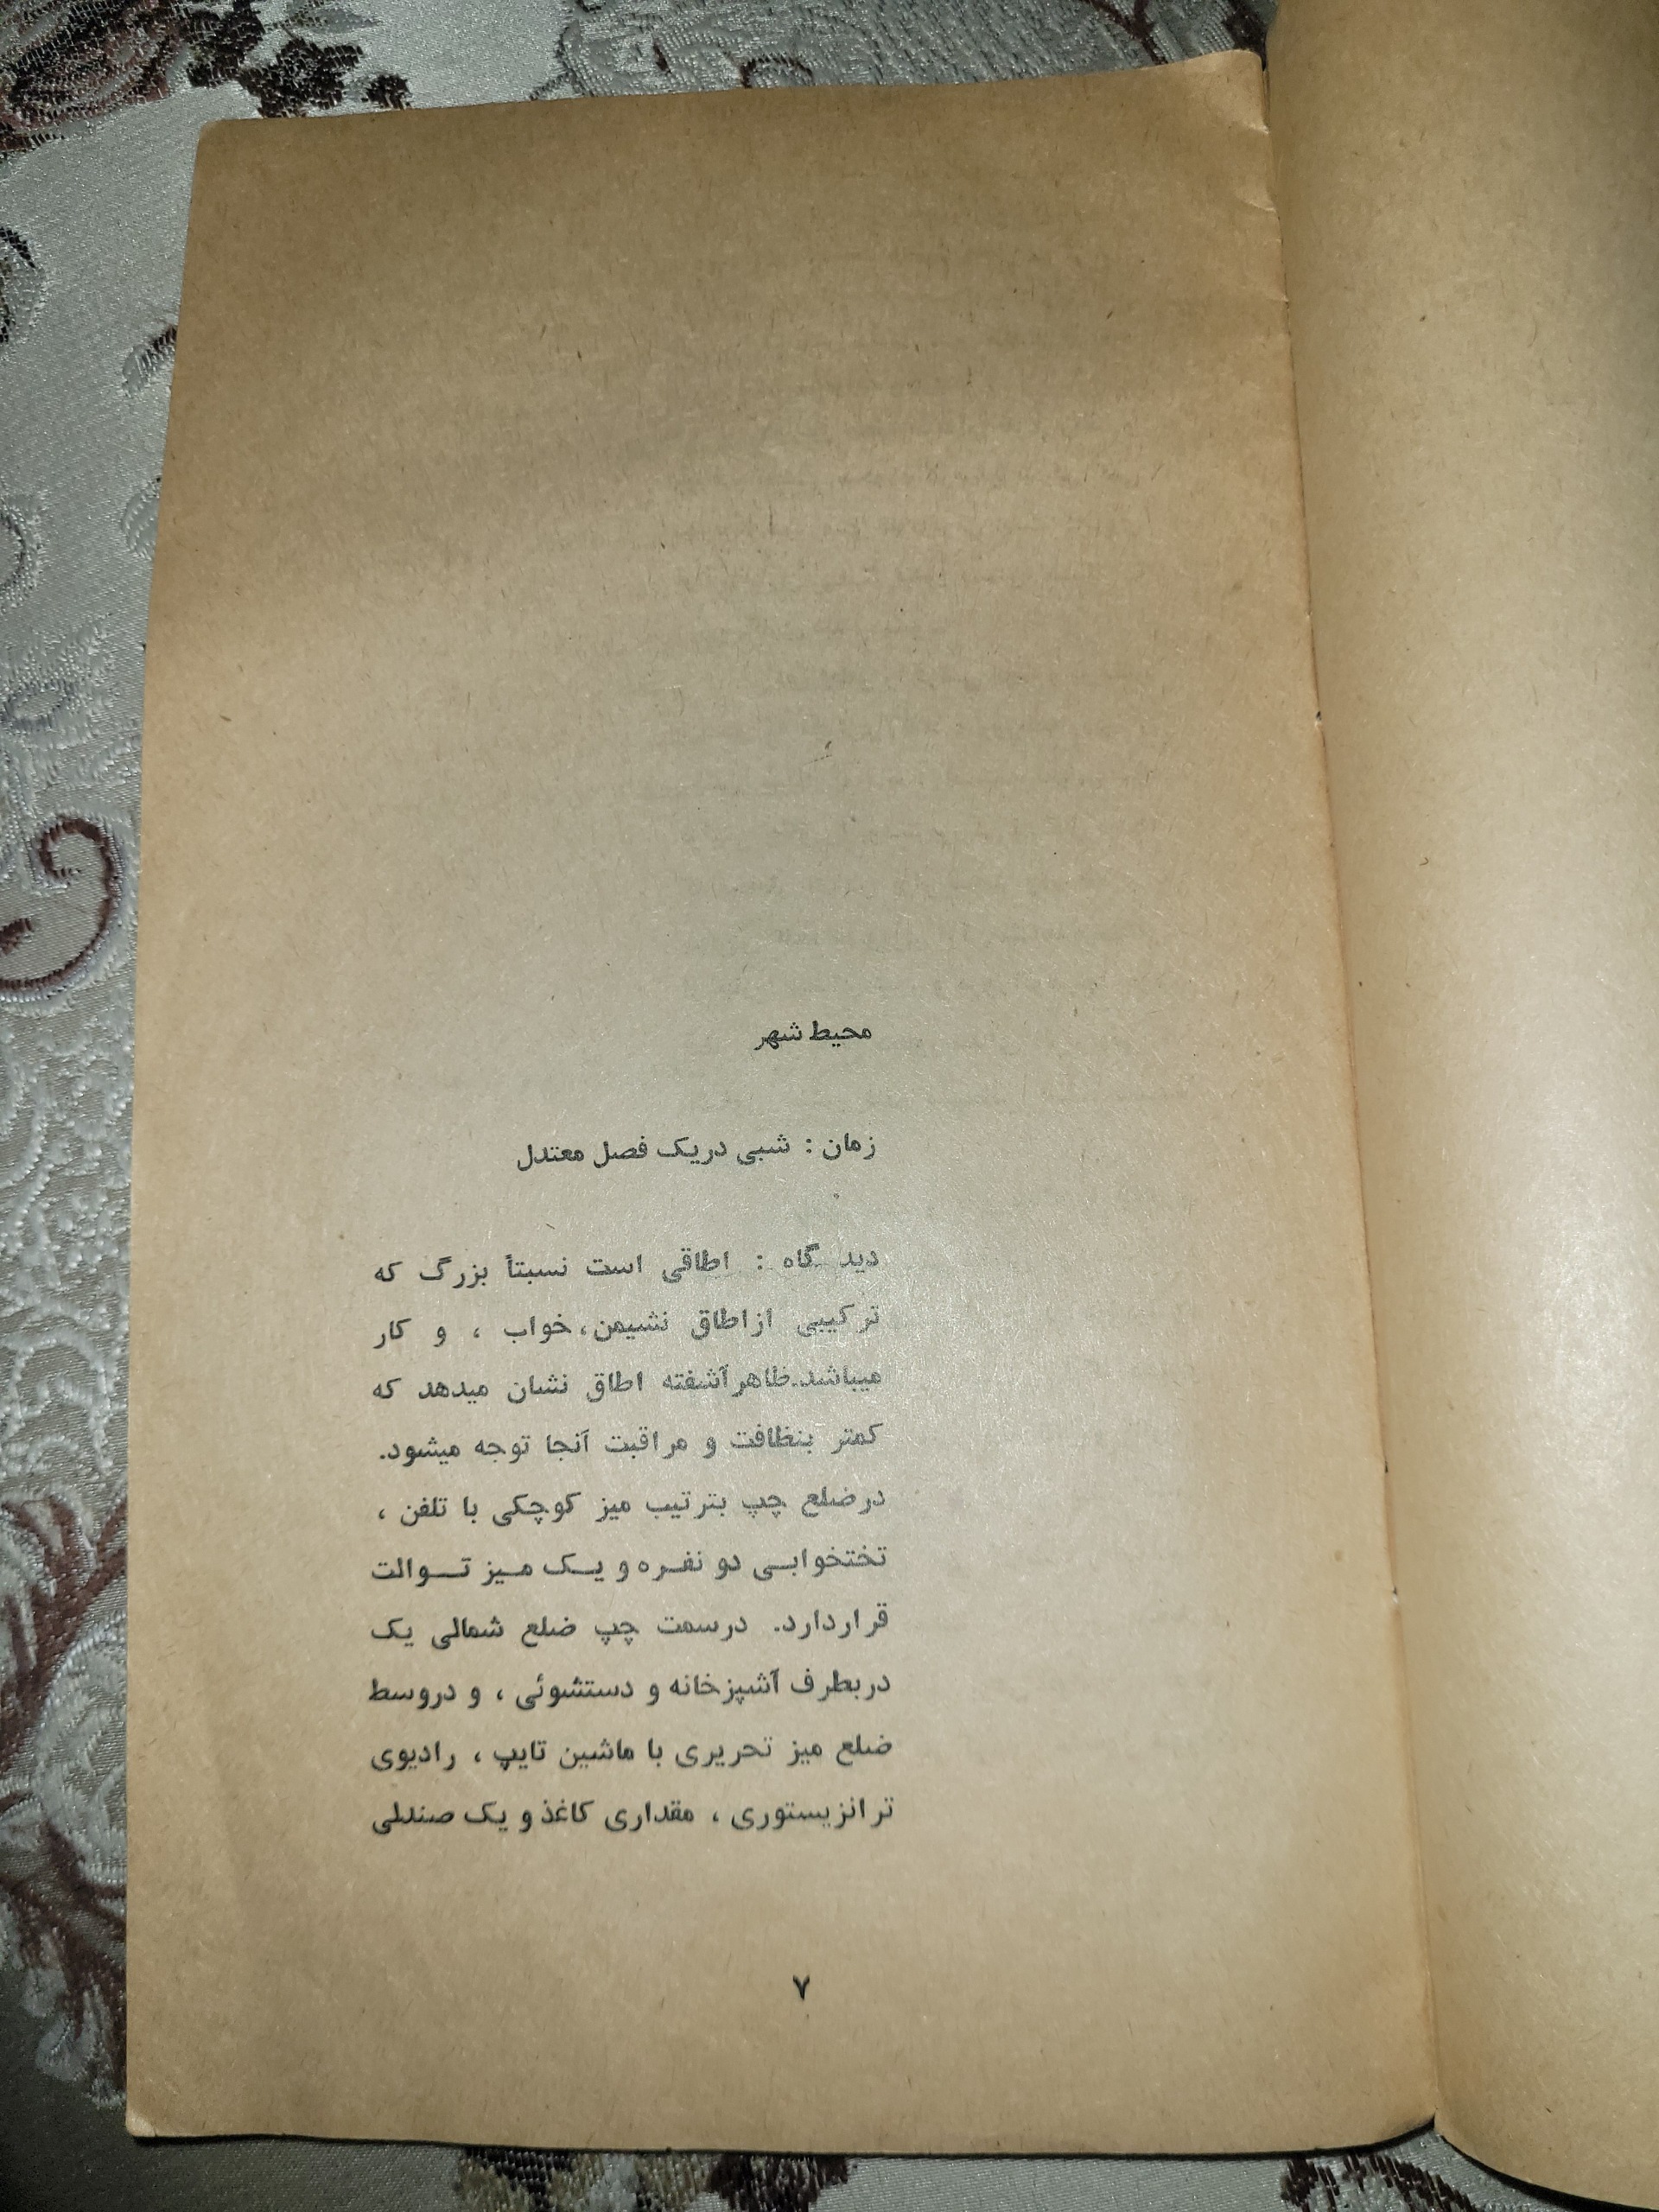 محیط شهر
زمان : شبی دریک فصل معتدل
دید گاه : اطاقی است نسبتاً بزرگ که
ترکیبی ازاطاق نشیمن، خواب ، و کار
میباشد.ظاهرآشفته اطاق نشان میدهد که
کمتر بنظافت و مراقبت آنجا توجه میشود.
درضلع چپ بترتیب میز کوچکی با تلفن ،
تختخوابی دو نفره و یک میز توالت
قراردارد. درسمت چپ ضلع شمالی یک
دربطرف آشپزخانه و دستشوئی ، و دروسط
ضلع میز تحریری با ماشین تایپ ، رادیوی
ترانزیستوری ، مقداری کاغذ و یک صندلی
۷